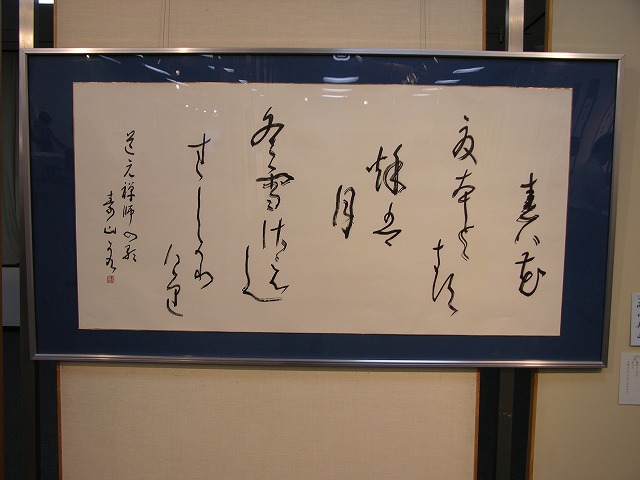 春ハ花
夏本とゝ
きす
秋は
月
冬雪さえて
すゝしかり
けり
道元禅師の歌
寿山